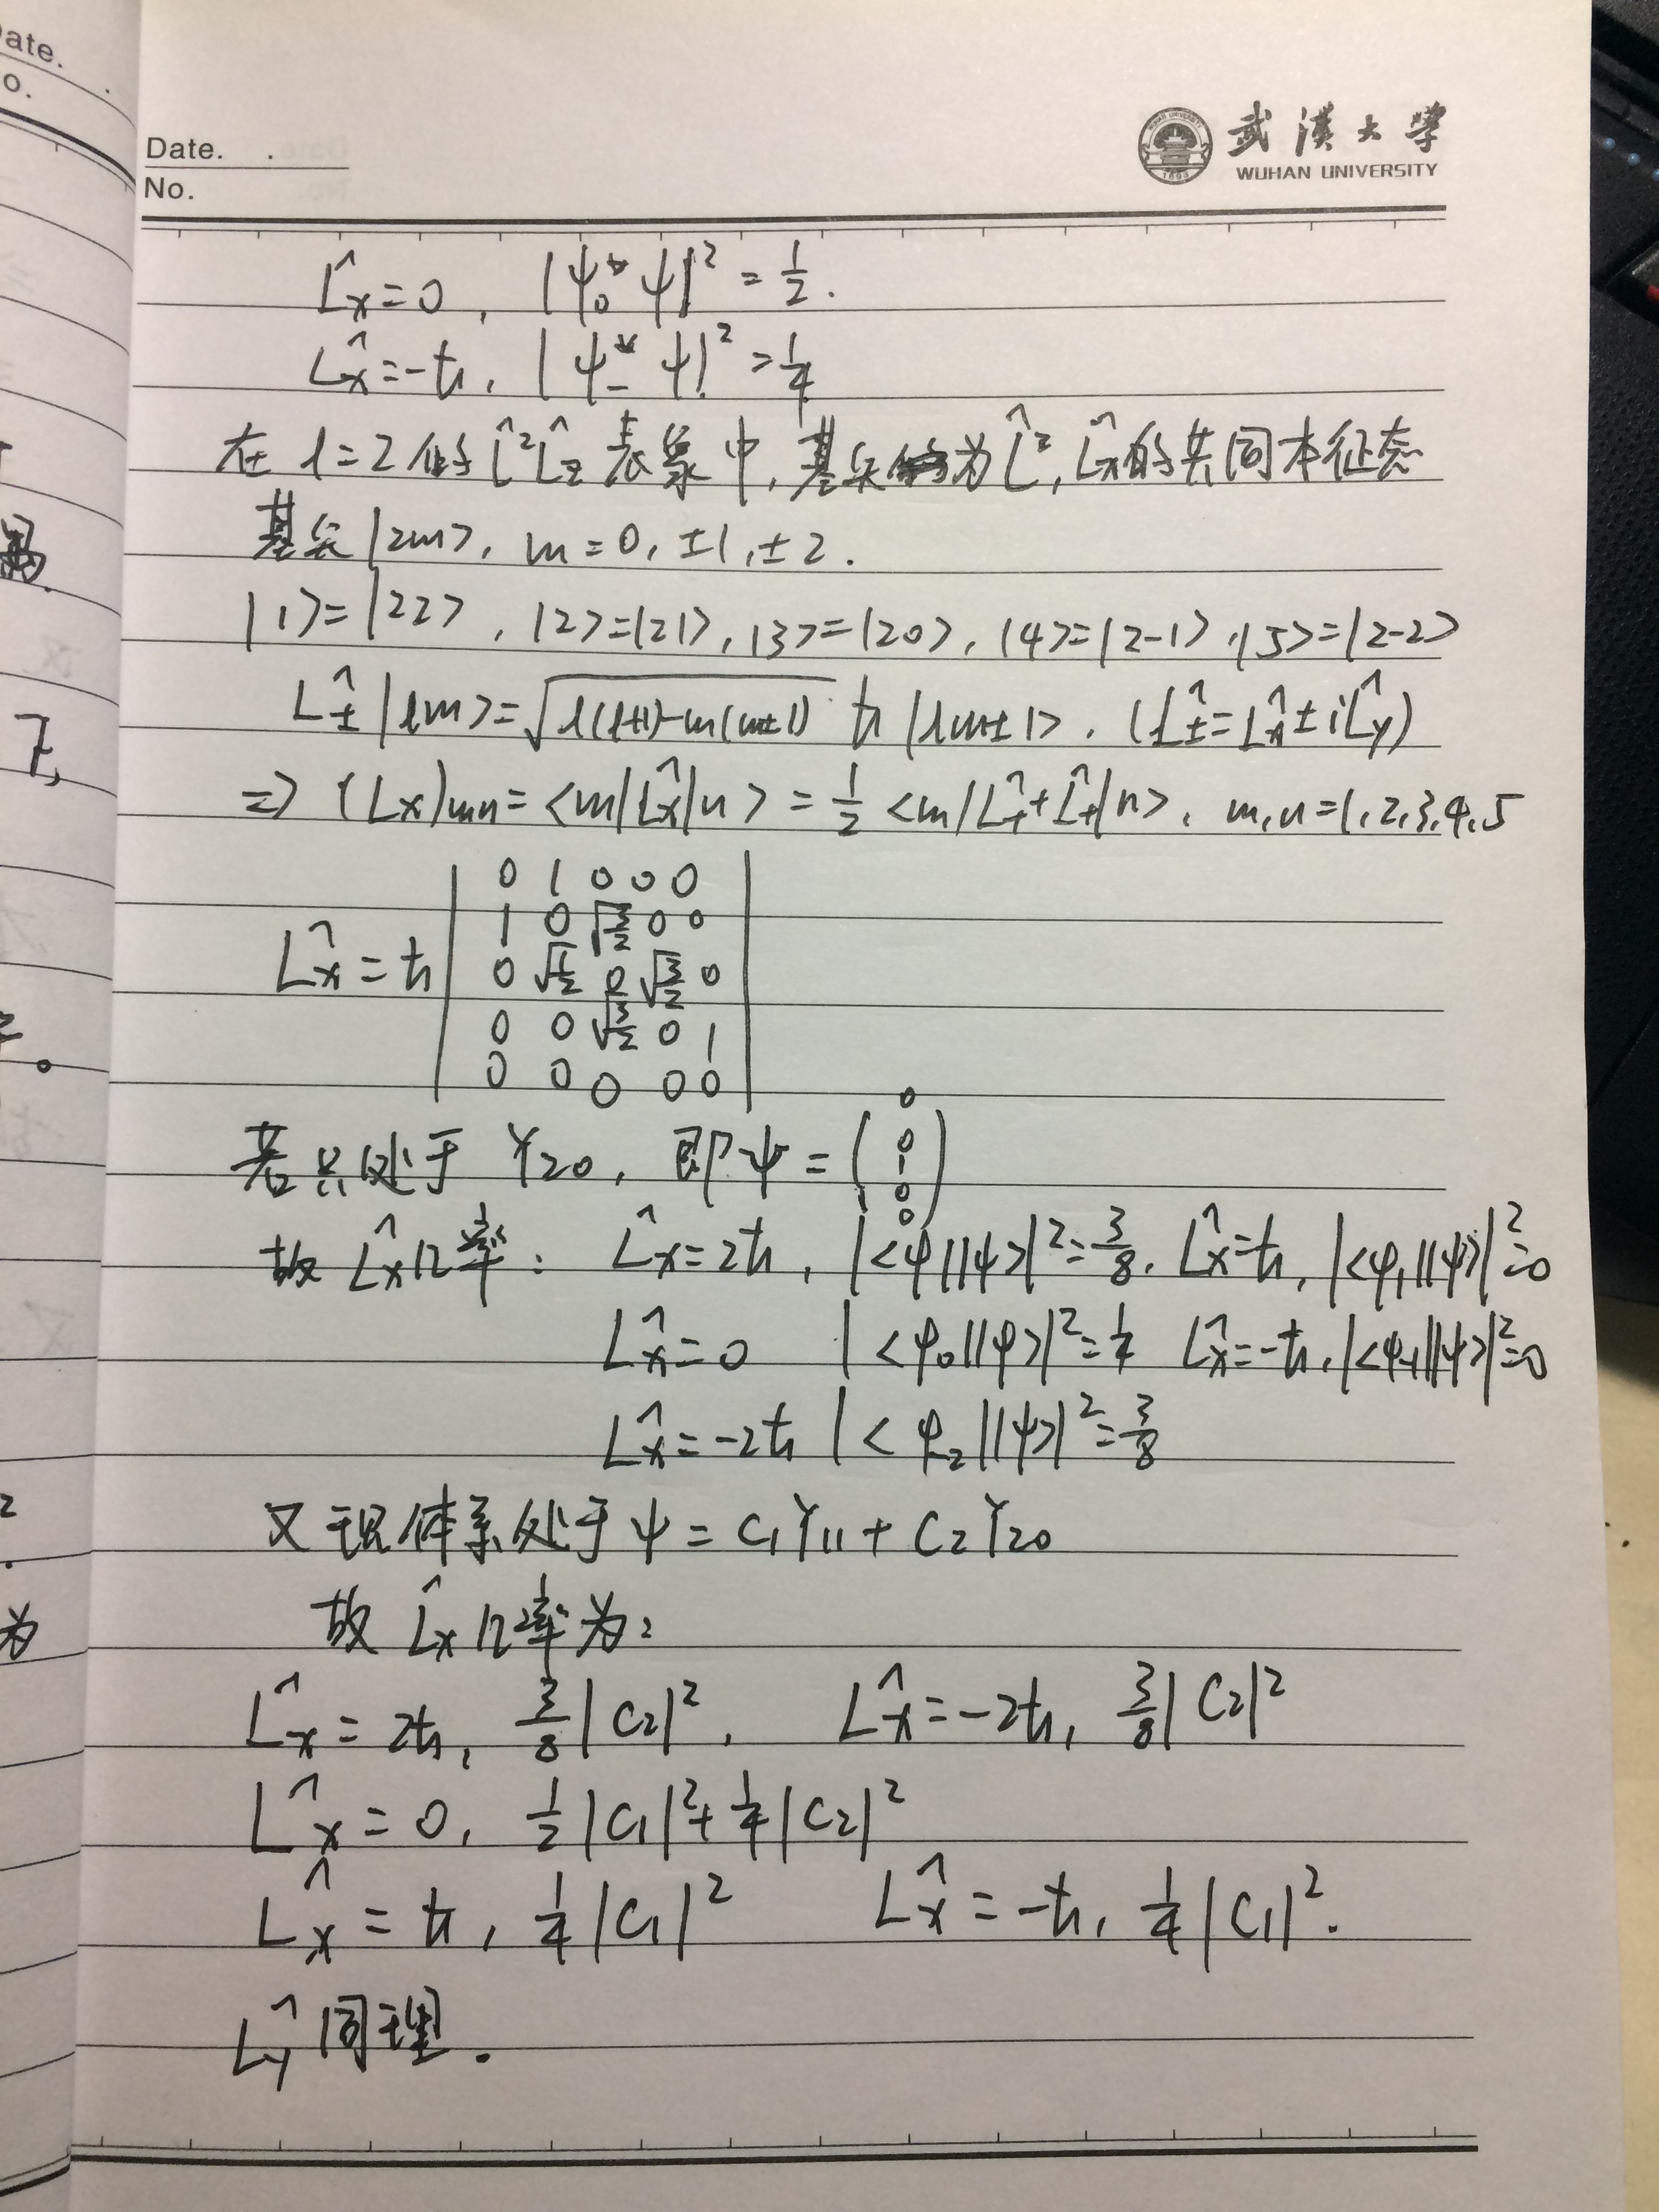 Date. .
No.
武漢大學
WUHAN UNIVERSITY
L̂x=0, |ψ₀* ψ|² = 1/2.
L̂x=-ħ, |ψ₋* ψ|² = 1/4
在 l=2 的 L̂²L̂z 表象中, 基矢为 L̂², L̂x的共同本征态
基矢 |2m>, m=0, ±1, ±2.
|1>=|22>, |2>=|21>, |3>=|20>, |4>=|2-1>, |5>=|2-2>
L̂± |lm> = √(l(l+1)-m(m±1)) ħ |lm±1>. (L̂±=L̂x±iL̂y)
=> (Lx)mn = <m|L̂x|n> = 1/2 <m|L̂₊+L̂₊|n>, m,n=1,2,3,4,5
0 1 0 0 0
1 0 √(3/2) 0 0
L̂x = ħ 0 √(3/2) 0 √(3/2) 0
0 0 √(3/2) 0 1
0 0 0 0 0
若只处于 Y₂₀, 即 ψ = (0 0 1 0 0)
故 L̂x几率: L̂x=2ħ, |<φ||ψ>|²=3/8. L̂x=ħ, |<φ₁||ψ>|²=0
L̂x=0 |<φ₀||φ>|²=1/4 L̂x=-ħ, |<φ₋₁||ψ>|²=0
L̂x=-2ħ |<φ₋₂||ψ>|²=3/8
又现体系处于 ψ = C₁Y₁₁ + C₂Y₂₀
故 L̂x几率为:
L̂x = 2ħ, 3/8 |C₂|², L̂x = -2ħ, 3/8 |C₂|²
L̂x = 0, 1/2 |C₁|² + 1/4 |C₂|²
L̂x = ħ, 1/4 |C₁|² L̂x = -ħ, 1/4 |C₁|².
L̂y 同理.